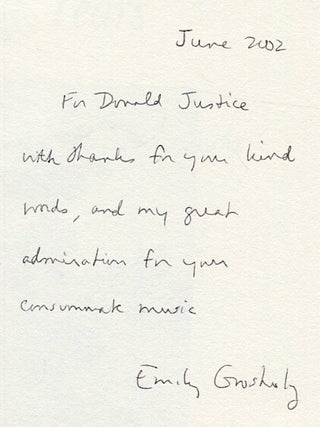 June 2002
For Donald Justice
with thanks for your kind
words, and my great
admiration for your
consummate music
Emily Grosholz